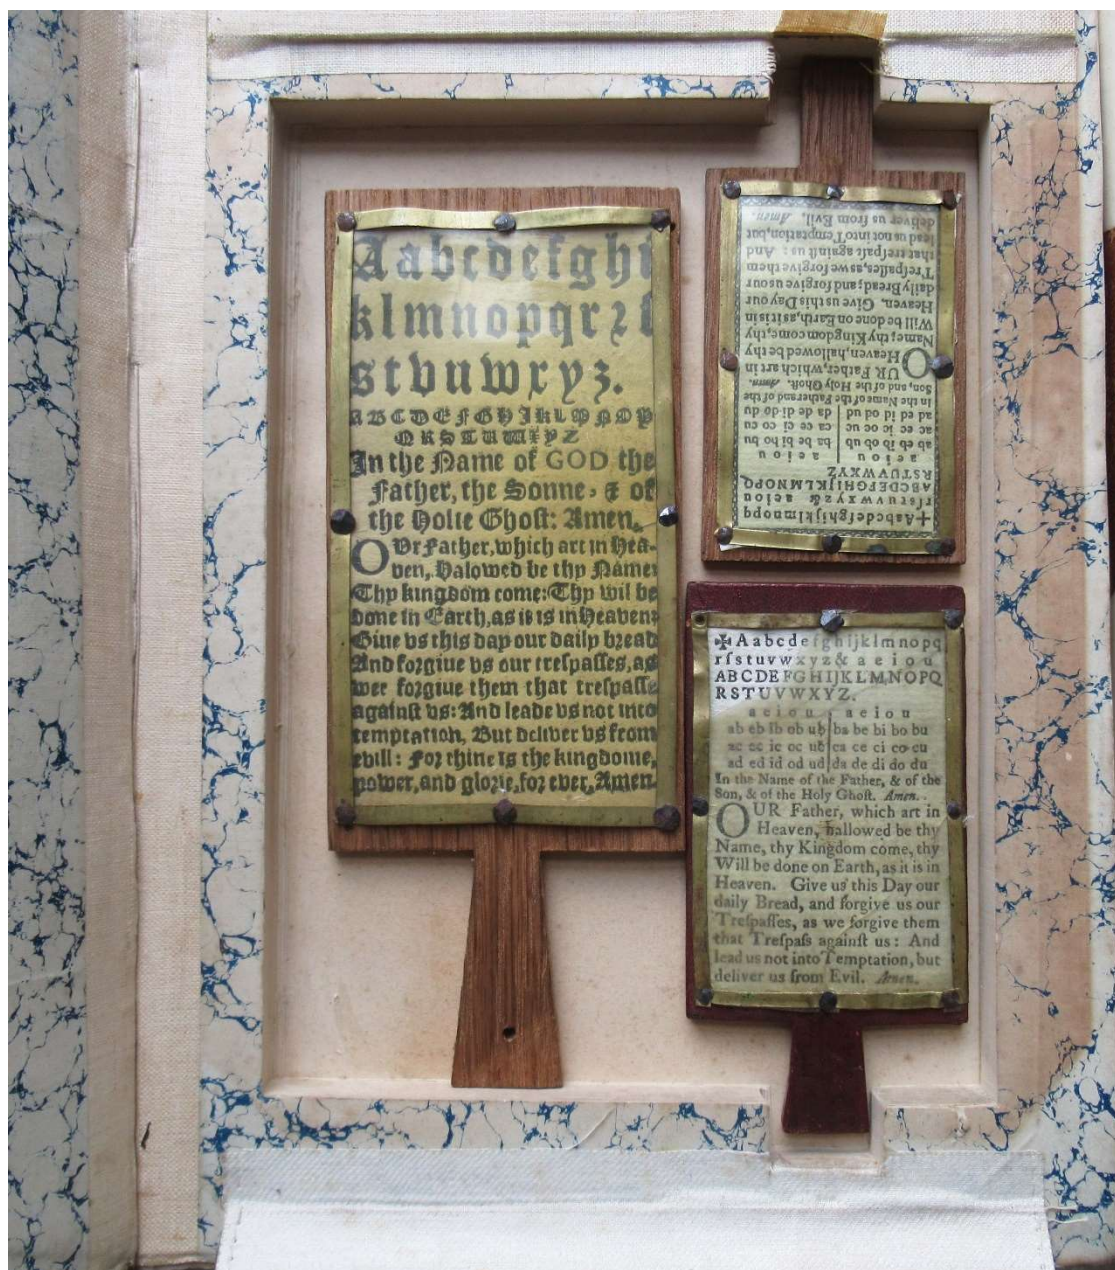 Aabcdefghi
klmnopqrꝛſ
stvuwxyz.
ABCDEFGHJKLMNOP
QRSTUWXYZ
In the Name of GOD the
Father, the Sonne, & of
the Holie Ghoſt: Amen.
OUr Father, which art in Hea-
ven, Halowed be thy Name:
Thy kingdom come: Thy wil be
done in Earth, as it is in Heaven:
Giue vs this day our daily bread
And forgiue vs our treſpaſſes, as
wee forgiue them that treſpaſſe
againſt vs: And leade vs not into
temptation, But deliver vs from
evill: For thine is the kingdome,
power, and glorie, for ever, Amen.
+Aabcdefghijklmnopq
rſstuvwxyz& aeiou
ABCDEFGHIJKLMNOPQ
RSTUVWXYZ
a e i o u a e i o u
ab eb ib ob ub ba be bi bo bu
ac ec ic oc uc ca ce ci co cu
ad ed id od ud da de di do du
In the Name of the Father and of the
Son, and of the Holy Ghoſt. Amen.
OUR Father, which art in
Heaven, hallowed be thy
Name; thy Kingdom come, thy
Will be done on Earth, as it is in
Heaven. Give us this Day our
daily Bread; and forgive us our
Treſpaſſes, as we forgive them
that treſpaſs againſt us: And
lead us not into Temptation, but
deliver us from Evil. Amen.
✠Aabcdefghijklmnopq
rſstuvwxyz& aeiou
ABCDEFGHIJKLMNOPQ
RSTUVWXYZ.
a e i o u a e i o u
ab eb ib ob ub ba be bi bo bu
ac ec ic oc uc ca ce ci co cu
ad ed id od ud da de di do du
In the Name of the Father, & of the
Son, & of the Holy Ghoſt. Amen.
OUR Father, which art in
Heaven, hallowed be thy
Name, thy Kingdom come, thy
Will be done on Earth, as it is in
Heaven. Give us this Day our
daily Bread, and forgive us our
Treſpaſſes, as we forgive them
that Treſpaſs againſt us: And
lead us not into Temptation, but
deliver us from Evil. Amen.